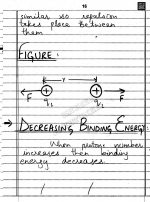 16
similar so repulsion
takes place between
them
FIGURE:
r
F
F
q₁
q₂
→ DECREASING BINDING ENERGY:
When proton number
increases then binding
energy decreases.